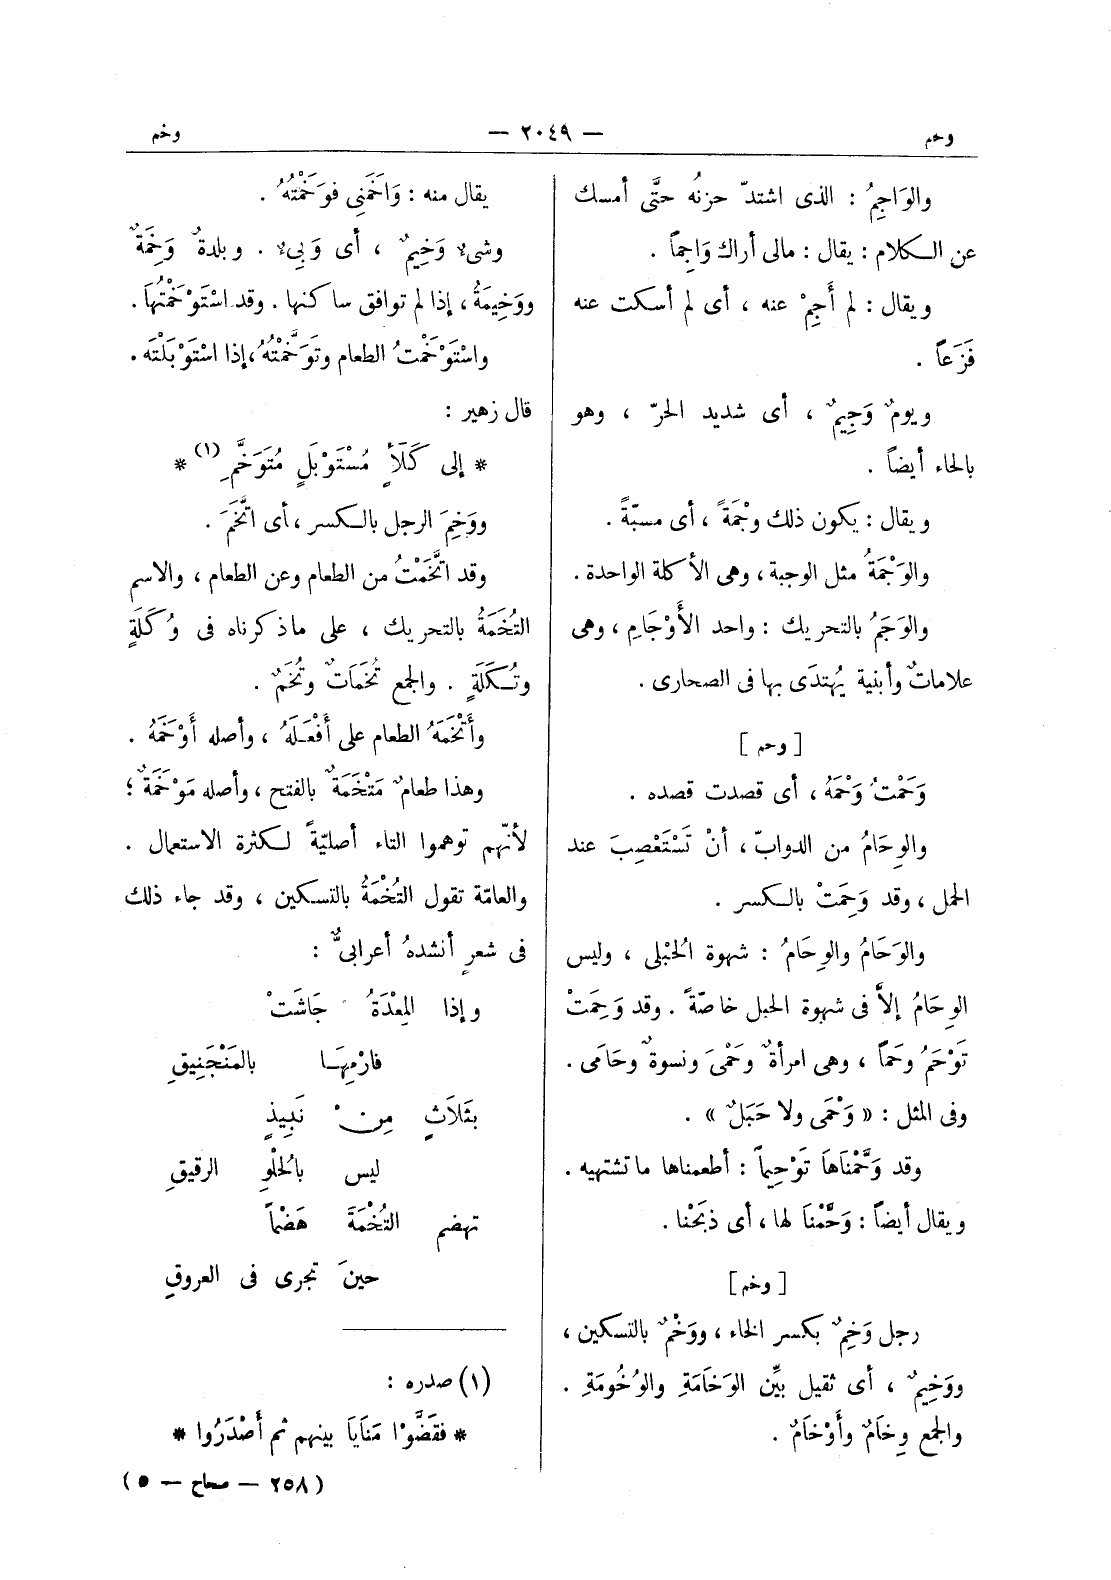 وحم — ٢٠٤٩ — وخم
والوَاجِمُ : الذى اشتدّ حزنُه حتَّى أمسك
عن الكلام : يقال : مالى أراك وَاجِماً .
ويقال : لم أَجِمْ عنه ، أى لم أسكت عنه
فَزَعاً .
ويومٌ وَجِيمٌ ، أى شديد الحرّ ، وهو
بالحاء أيضاً .
ويقال : يكون ذلك وَجْمَةً ، أى مسبّةً .
والوَجْمَةُ مثل الوجبة ، وهى الأكلة الواحدة .
والوَجَمُ بالتحريك : واحد الأَوْجَامِ ، وهى
علاماتٌ وأبنية يُهتدَى بها فى الصحارى .
[ وحم ]
وَحَمْتُ وَحْمَهُ ، أى قصدت قصده .
والوِحَامُ من الدوابّ ، أنْ تَسْتَعْصِبَ عند
الحمل ، وقد وَحِمَتْ بالكسر .
والوَحَامُ والوِحَامُ : شهوة الحُبْلى ، وليس
الوِحَامُ إلاَّ فى شهوة الحبل خاصّةً . وقد وَحِمَتْ
تَوْحَمُ وحَماً ، وهى امرأةٌ وحَمْىَ ونسوةٌ وحَامَى .
وفى المثل : « وَحْمَى ولا حَبَلٌ » .
وقد وَحَّمْنَاهَا تَوْحِيماً : أطعمناها ما تشتهيه .
ويقال أيضاً : وَحَّمْنَا لها ، أى ذبَحْنا .
[ وخم ]
رجل وَخِمٌ بكسر الخاء ، ووَخْمٌ بالتسكين ،
ووَخِيمٌ ، أى ثقيل بيِّن الوَخَامَةِ والوُخُومَةِ .
والجمع وِخَامٌ وأَوْخَامٌ .
يقال منه : وَاخَمَنِى فوَخَمْتُهُ .
وشىء وَخِيمٌ ، أى وَبِىء . وبلدةٌ وَخِمَةٌ
ووَخِيمَةٌ ، إذا لم توافق ساكنها . وقد اسْتَوْخَمْتُهَا .
واسْتَوْخَمْتُ الطعام وتَوَخَّمْتُهُ ، إذا اسْتَوْبَلْتَه .
قال زهير :
* إلى كَلَأٍ مُسْتَوْبَلٍ مُتَوَخَّمِ (١) *
ووَخِمَ الرجل بالكسر ، أى اتَّخَمَ .
وقد اتَّخَمْتُ من الطعام وعن الطعام ، والاسم
التُخَمَةُ بالتحريك ، على ما ذكرناه فى وُكَلَةٍ
وتُكَلَةٍ . والجمع تُخَمَاتٌ وتُخَمٌ .
وأَتْخَمَهُ الطعام على أَفْعَلَهُ ، وأصله أَوْخَمَهُ .
وهذا طعامٌ مَتْخَمَةٌ بالفتح ، وأصله مَوْخَمَةٌ ؛
لأنّهم توهموا التاء أصليّةً لكثرة الاستعمال .
والعامّة تقول التُخْمَةُ بالتسكين ، وقد جاء ذلك
فى شعرٍ أنشدهُ أعرابىٌّ :
وإذا المِعْدَةُ جَاشَتْ
فارْمِهَا بالمَنْجَنِيقِ
بثَلاَثٍ مِنْ نَبِيذٍ
ليس بالحُلْوِ الرقيقِ
تهضم التُخْمَةَ هَضْماً
حينَ تجرى فى العروقِ
(١) صدره :
* فقَضَّوْا مَنَايَا بينهم ثم أَصْدَرُوا *
( ٢٥٨ — صحاح — ٥ )